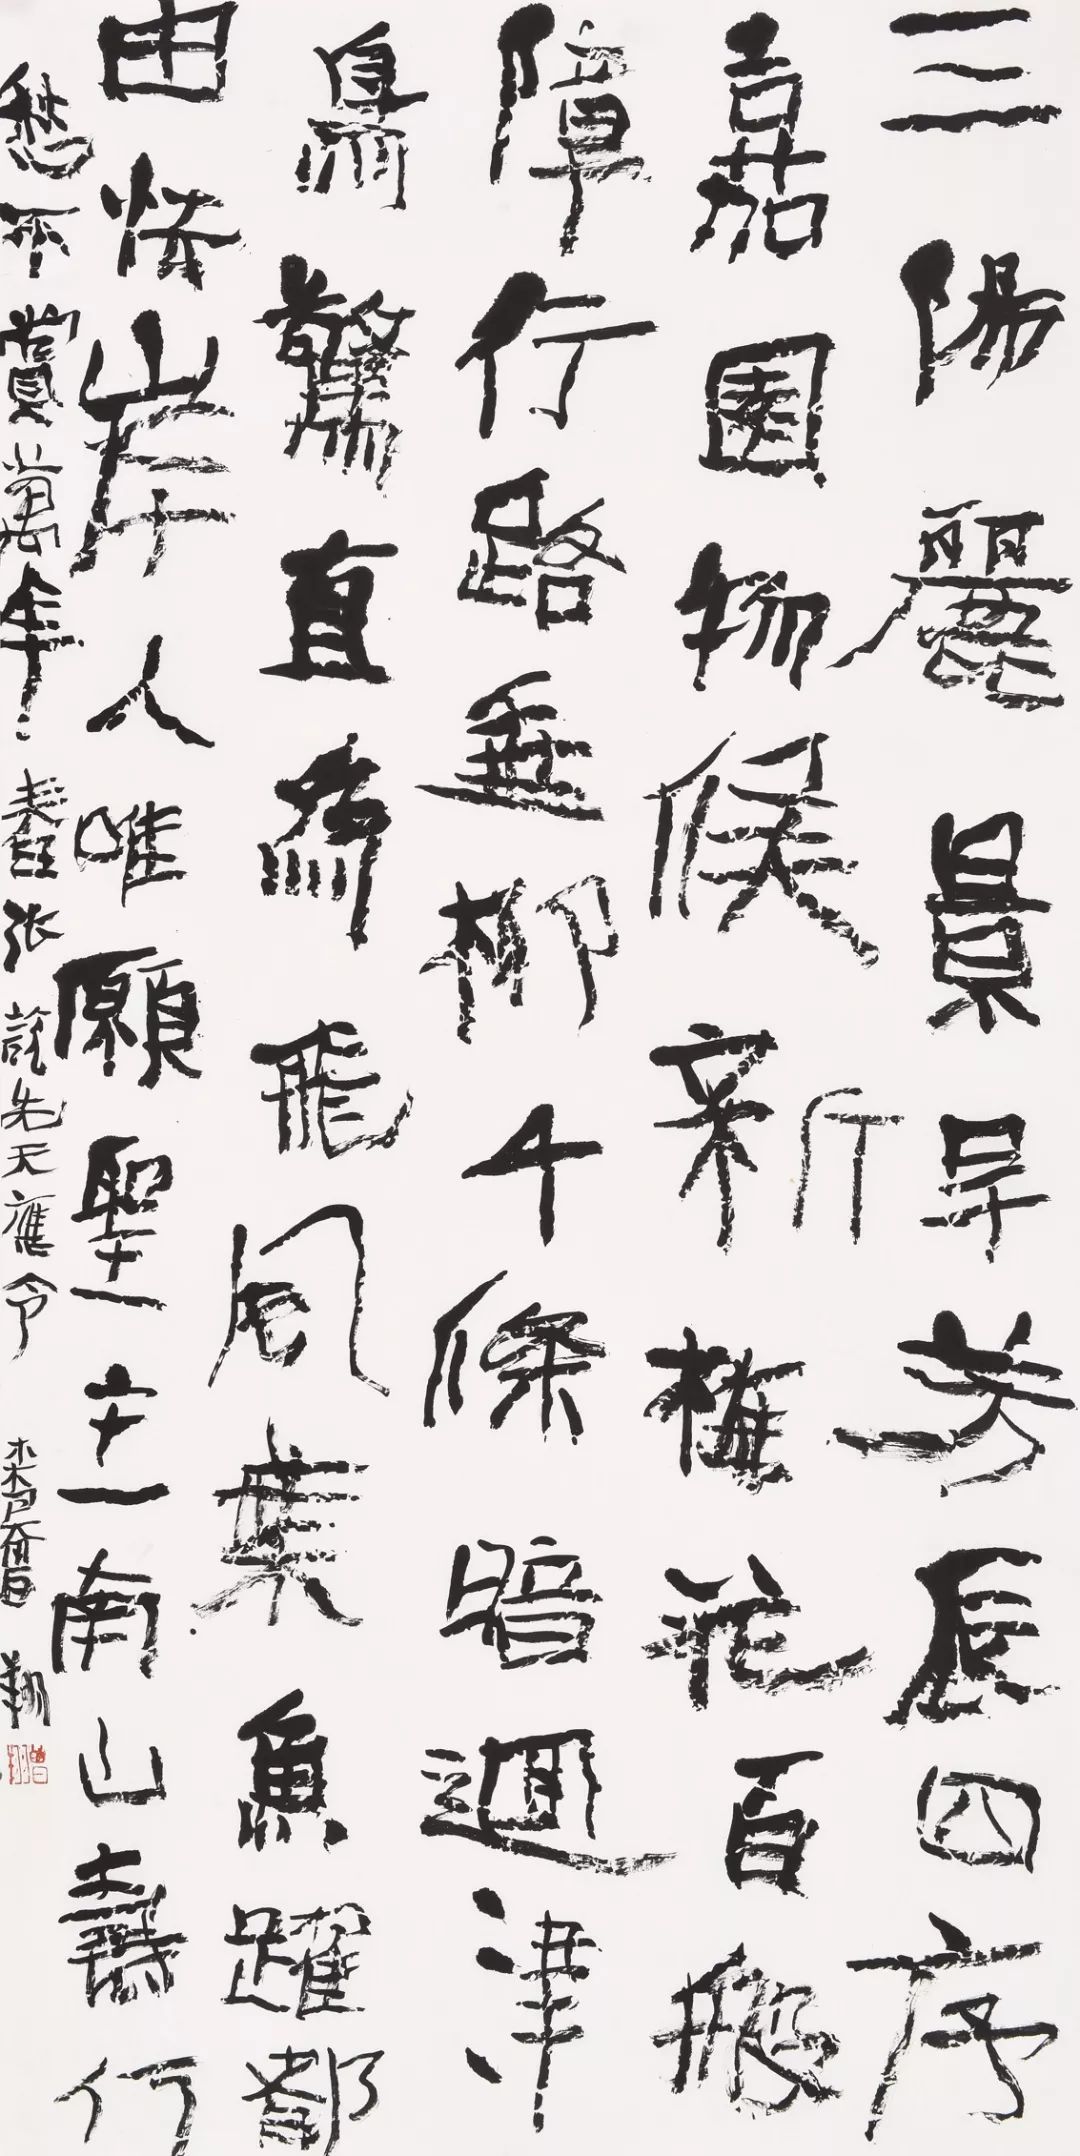 三陽麗景早芳辰四序
嘉園物候新梅花百般
障行路垂柳千條暗迴津
鳥驚直為飛風葉魚躍都
由怯岸人唯願聖主南山壽何
愁不賞萬年春 張說先天應令
曾翔